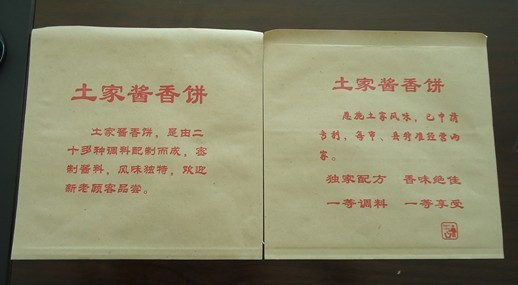 土家酱香饼
土家酱香饼，是由二
十多种调料配制而成，密
制酱料，风味独特，欢迎
新老顾客品尝。
土家酱香饼
土家风味，已申请
专利，各市、县特准经营的
家。
独家配方 香味绝佳
一等调料 一等享受